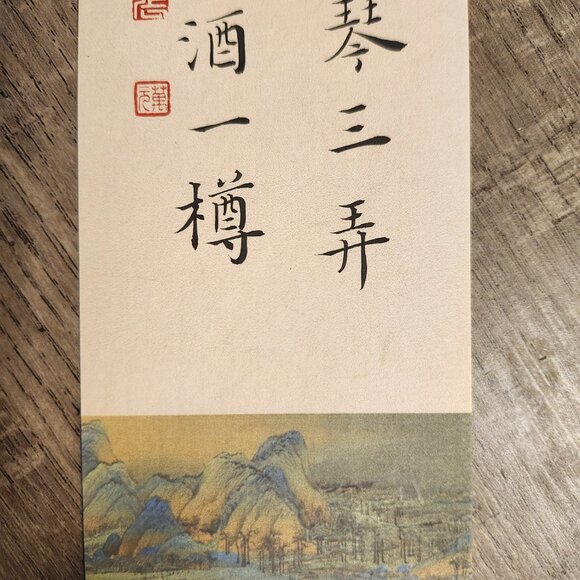 琴三弄
酒一樽